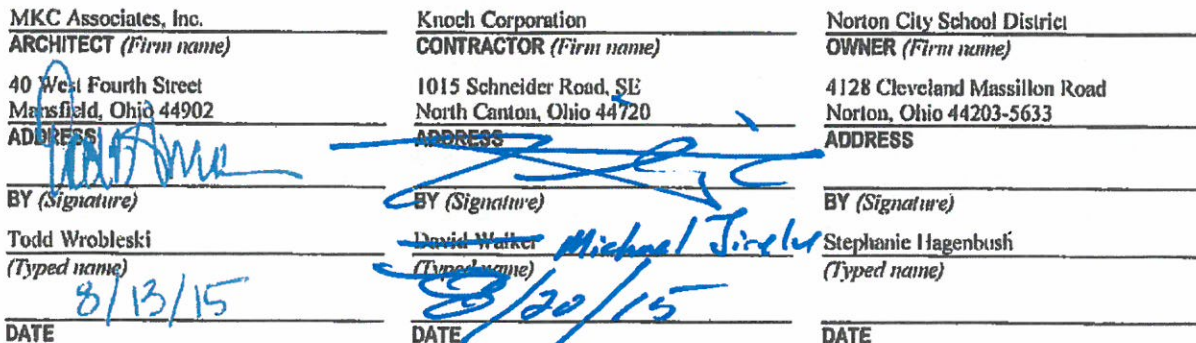 MKC Associates, Inc.
ARCHITECT (Firm name)
40 West Fourth Street
Mansfield, Ohio 44902
ADDRESS
BY (Signature)
Todd Wrobleski
(Typed name)
8/13/15
DATE
Knoch Corporation
CONTRACTOR (Firm name)
1015 Schneider Road, SE
North Canton, Ohio 44720
ADDRESS
BY (Signature)
David Walker Michael
(Typed name)
8/20/15
DATE
Norton City School District
OWNER (Firm name)
4128 Cleveland Massillon Road
Norton, Ohio 44203-5633
ADDRESS
BY (Signature)
Stephanie Hagenbush
(Typed name)
DATE